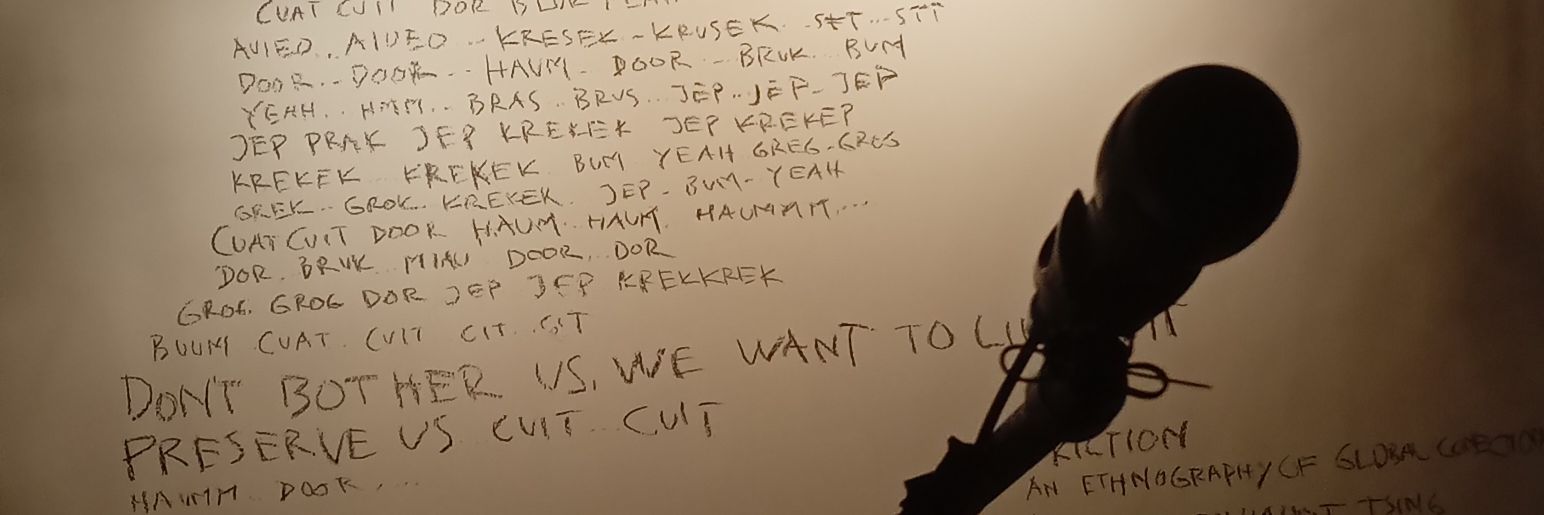 CUAT CUIT DOR
AUIEO.. AIUEO -- KRESEK - KRUSEK. SET... STT
DOOR... DOOR... HAUM - DOOR -- BRUK... BUM
YEAH.. HMM.. BRAS.. BRUS... JEP.. JEP - JEP
JEP PRAK JEP KREKEK JEP KREKEP
KREKEK KREKEK BUM YEAH GREG-GREG
GREK.. GROK.. KREKEK. JEP - BUM - YEAH
CUAT CUIT DOOR HAUM.. HAUM. HAUMMM....
DOR.. BRUK MIAU DOOR.. DOR
GROG. GROG DOR JEP JEP KREKKREK
BUUM CUAT. CUIT CIT. CIT
DON'T BOTHER US, WE WANT TO
PRESERVE US CUIT CUIT
HAUMM DOOR....
AN ETHNOGRAPHY OF GLOBAL
TSING